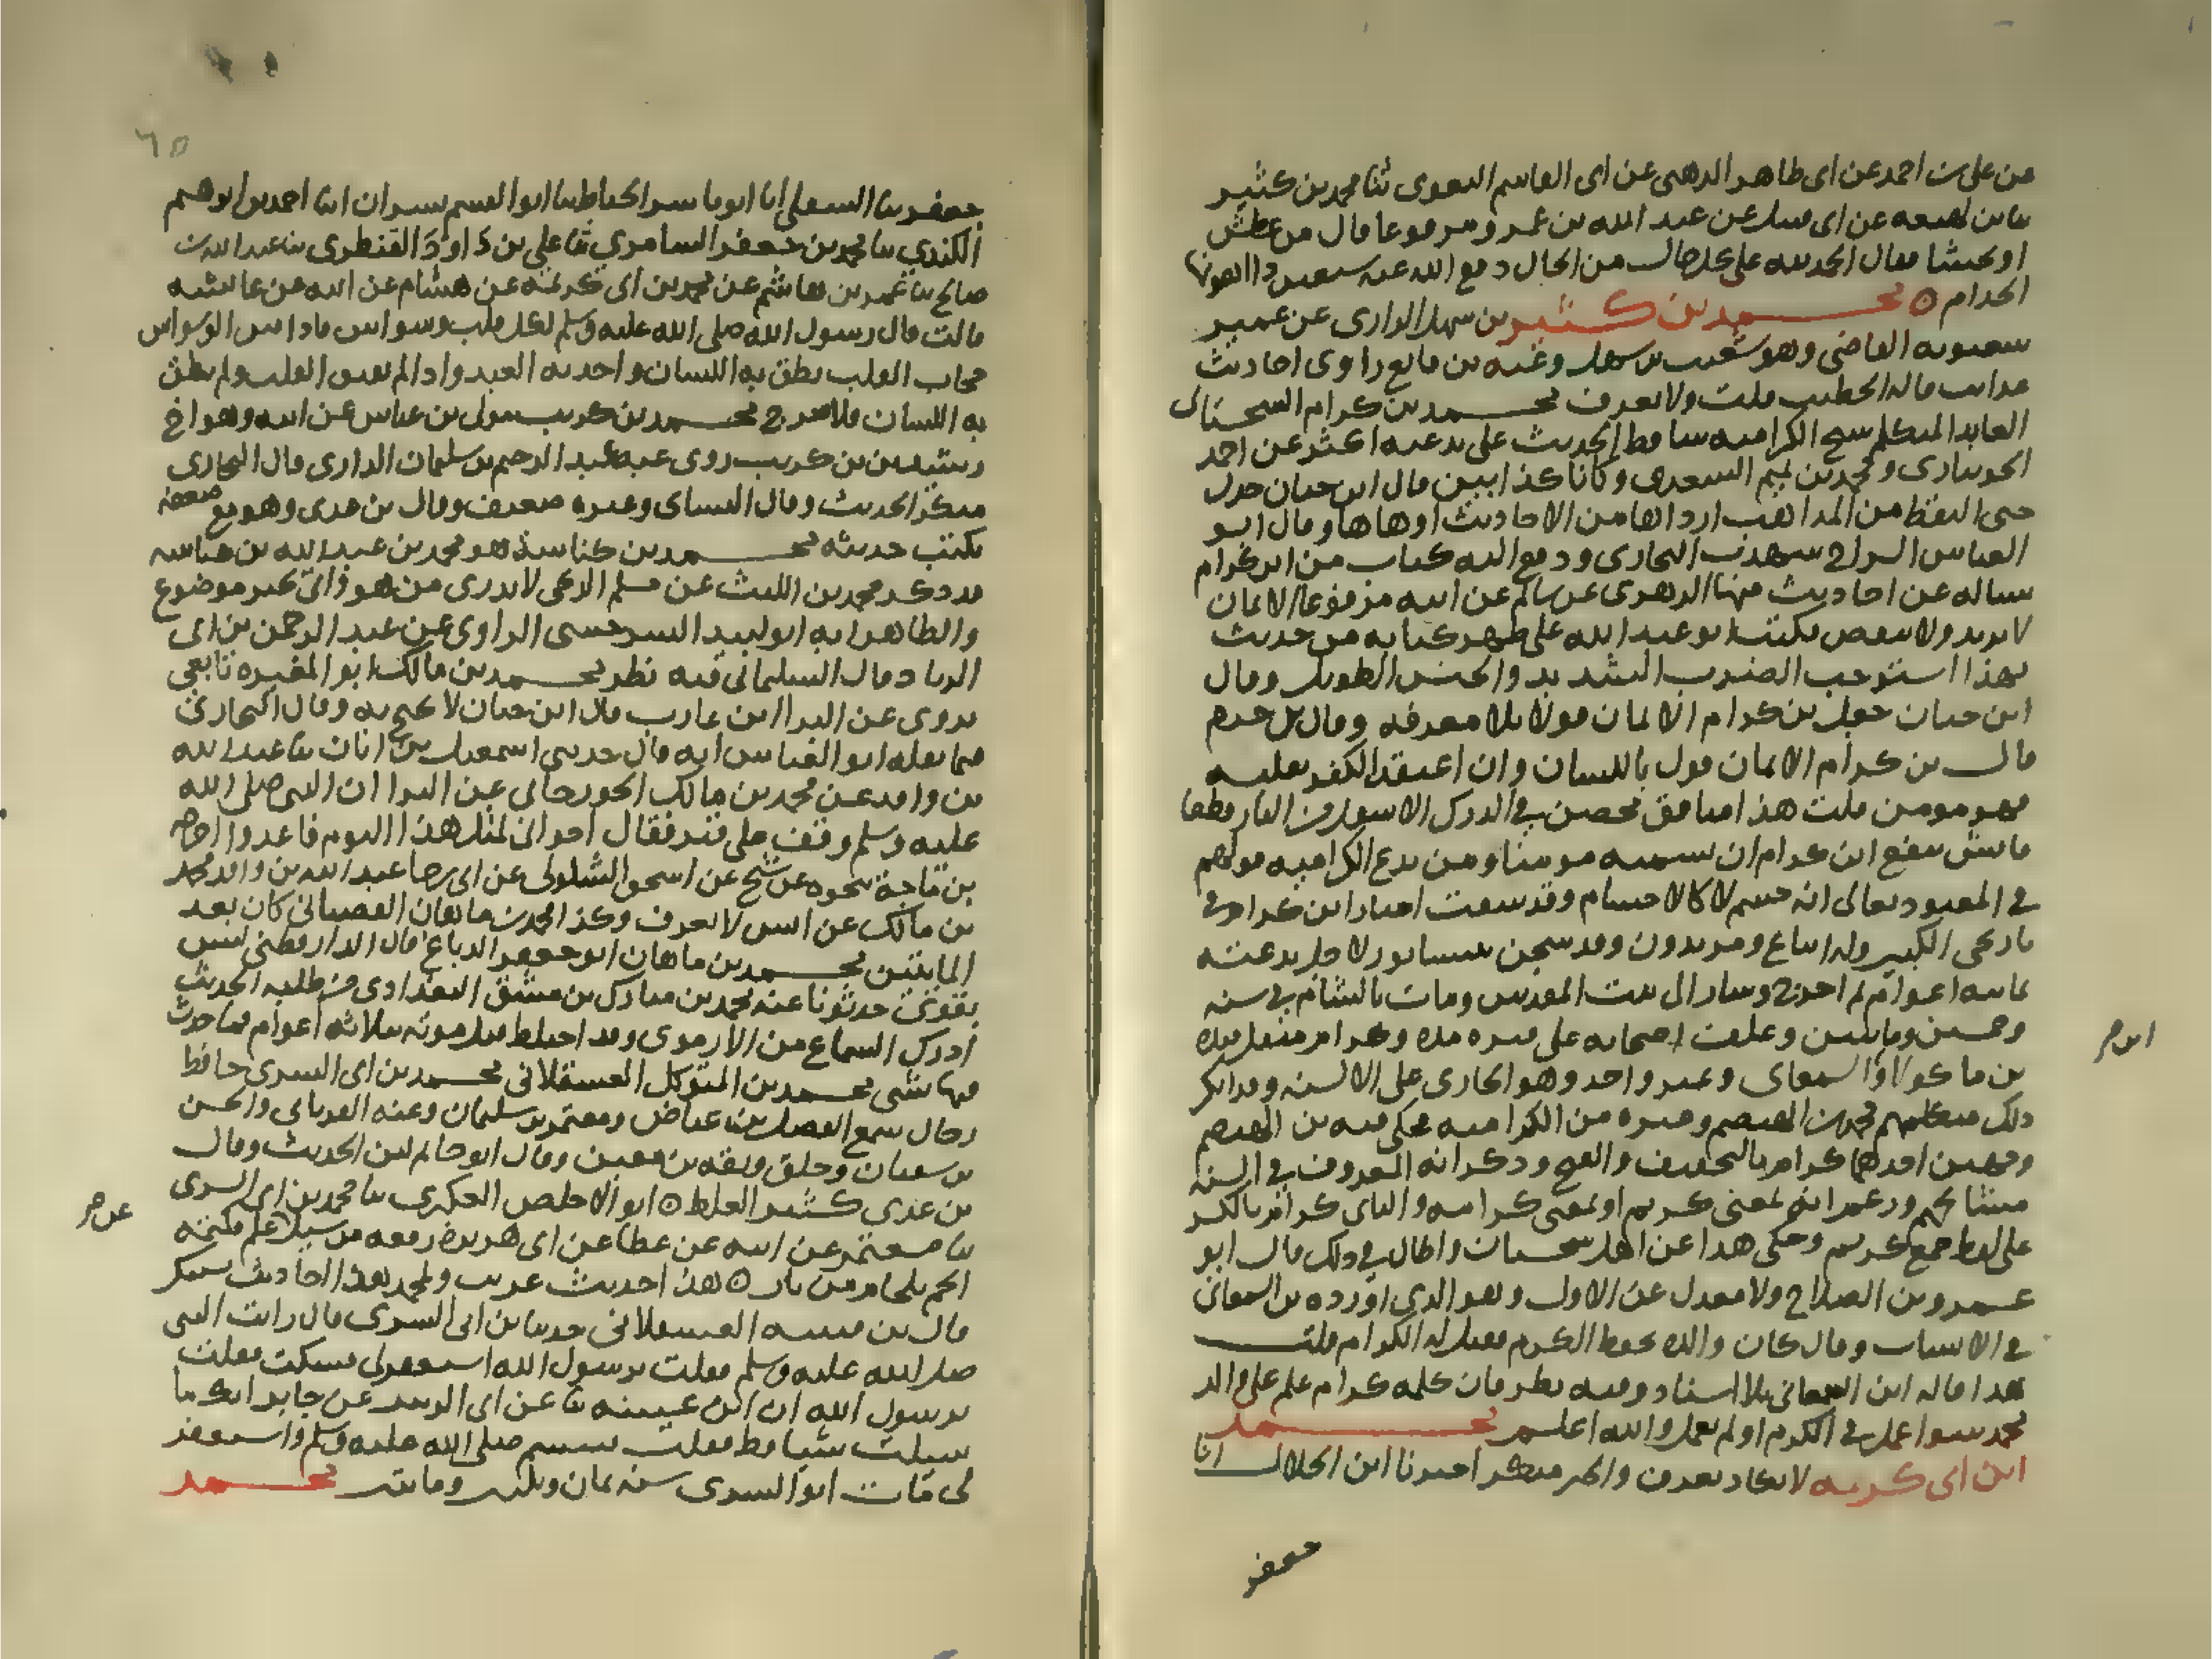 من على بن احمد عن ابى طاهر الذهبى عن ابى القاسم البغوى ثنا محمد بن كثير
ثنا بن لهيعه عن ابى قبيل عن عبد الله بن عمرو مرفوعا قال من عطس
او تجشا فقال الحمد لله على كل حال من الحال دفع الله عنه سبعين داا اهونها
الجذام ۞ محمد بن كثير بن سهل الرازى عن عمير
سعبويه القاضى وهو شعيب بن سهل وغيه بن نافع راوى احاديث
قاله الخطيب قلت ولا يعرف محمد بن كرام السجستانى
العابد المتكلم شيخ الكراميه ساقط الحديث على بدعته اكثر عن احمد
الجويبارى ومحمد بن تميم السعدى وكانا كذابين قال ابن حبان خذل
حتى التقط من المذاهب ارداها من الاحاديث اوهاها وقال ابو
العباس السراج شهدت البخارى ودفع اليه كتاب من ابن كرام
يساله عن احاديث منها الزهرى عن سالم عن ابيه مرفوعا الايمان
لا يزيد ولا ينقص فكتب ابو عبد الله على ظهر كتابه من حدث
بهذا استوجب الضرب الشديد والحبس الطويل وقال
ابن حبان جعل بن كرام الايمان قولا بلا معرفه وقال بن حزم
قال بن كرام الايمان قول باللسان وان اعتقد الكفر بقلبه
فهو مومن قلت هذا منافق محض فى الدرك الاسفل من النار قطعا
فايش ينفع ابن كرام ان يسميه مومنا ومن بدع الكراميه قولهم
فى المعبود تعالى انه جسم لا كالاجسام وقد سقت اخبار ابن كرام فى
تاريخى الكبير وله اتباع ومريدون وقد سجن بنيسابور لاجل بدعته
ثمانيه اعوام ثم اخرج وسار الى بيت المقدس ومات بالشام فى سنه
وخمسين ومايتين وعكف اصحابه على قبره مده وكرام مثقل قيده
بن ماكولا والسمعانى وغير واحد وهو الجارى على الالسنه وقد انكر
ذلك متكلمهم محمد بن الهيصم وغيره من الكراميه فحكى فيه بن الهيصم
وجهين احدهما كرام بالتخفيف والفتح وذكر انه المعروف فى السنه
مشايخهم وزعم انه بمعنى كرم او بمعنى كرامه والثانى كرام بالكسر
على لفظ جمع كريم وحكى هذا عن اهل سجستان واطال فى ذلك قال ابو
عمرو بن الصلاح ولا معدل عن الاول وهو الذى اورده بن السمعانى
فى الانساب وقال كان والده يحفظ الكرم فقيل له الكرام قلت
هذا قاله ابن السمعانى بلا اسناد وفيه نظر فان كلمه كرام علم على والد
محمد سوا عمل فى الكرم او لم يعمل والله اعلم محمد
ابن ابى كريمه لا يكاد يعرف والخبر منكر اخبرنا ابن الخلال انا
جعفر
جعفر بنا السلفى انا ابو ياسر الخياط بنا ابو القسم بن بشران انا احمد بن ابراهيم
الكندى بنا محمد بن جعفر السامرى ثنا على بن داود القنطرى بنا عبد الله بن
صالح بنا عمر بن هاشم عن محمد بن ابى كريمة عن هشام عن ابيه عن عائشه
قالت قال رسول الله صلى الله عليه وسلم لكل قلب وسواس فاذا فتق الوسواس
حجاب القلب نطق به اللسان واخذ به العبد واذا لم يفتق القلب ولم ينطق
به اللسان فلا حرج محمد بن كريب مولى بن عباس عن ابيه وهو اخ
رشدين بن كريب روى عنه عبد الرحيم بن سليمان الرازى قال البخارى
منكر الحديث وقال النساى وغيره ضعيف وقال بن عدى وهو مع ضعفه
يكتب حديثه محمد بن كناسة هو محمد بن عبد الله بن كناسه
قد ذكر محمد بن الليث عن مسلم الزنجى لا يدرى من هو واتى بخبر موضوع
والظاهر انه ابو لبيد السرخسى الراوى عن عبد الرحمن بن ابى
الزناد قال السليمانى فيه نظر محمد بن مالك ابو المغيره تابعى
يروى عن البراا بن عازب قال ابن حبان لا يحتج به وقال البخارى
فيما نقله ابو العباس انه قال حدثنى اسمعيل بن ابان بنا عبد الله
بن واقد عن محمد بن مالك الجوزجانى عن البرا ان النبى صلى الله
عليه وسلم وقف على قبر فقال اخوانى لمثل هذا اليوم فاعدوا اخرجه
بن ماجة نحوه عن شيخ عن اسحق السلولى عن ابى رجا عبد الله بن واقد محمد
بن مالك عن انس لا يعرف وكذا محمد بن ماهان القصبانى كان بعد
المايتين محمد بن ماهان ابو جعفر الدباغ قال الدارقطنى ليس
بقوى حدثونا عنه محمد بن مبارك بن مشق البغدادى من طلبه الحديث
ادرك السماع من الارموى وقد اختلط قبل موته بثلاثه اعوام فما حدث
فيها بشى محمد بن المتوكل العسقلانى محمد بن ابى السرى حافظ
رحال سمع الفضيل بن عياض ومعتمر بن سليمان وعنه الفريابى والحسن
بن سفيان وخلق وثقه بن معين وقال ابو حاتم لين الحديث وقال
بن عدى كثير الغلط ۞ ابو الاحوص العكبرى بنا محمد بن ابى السرى
بنا معتمر عن ابيه عن عطا عن ابى هريرة رفعه من سيل علم فكتمه
الجم بلجام من نار ۞ هذا حديث غريب ولمحمد هذا احاديث تستنكر
قال بن قتيبه العسقلانى حدثنا بن ابى السرى قال رايت النبى
صلى الله عليه وسلم فقلت يرسول الله استغفر لى فسكت فقلت
يرسول الله ان ابن عيينه ثنا عن ابى الزبير عن جابر انك ما
سيلت شيا قط فقلت فتبسم صلى الله عليه وسلم واستغفر
لى مات ابو السرى سنه ثمان وثلثين ومايتين محمد